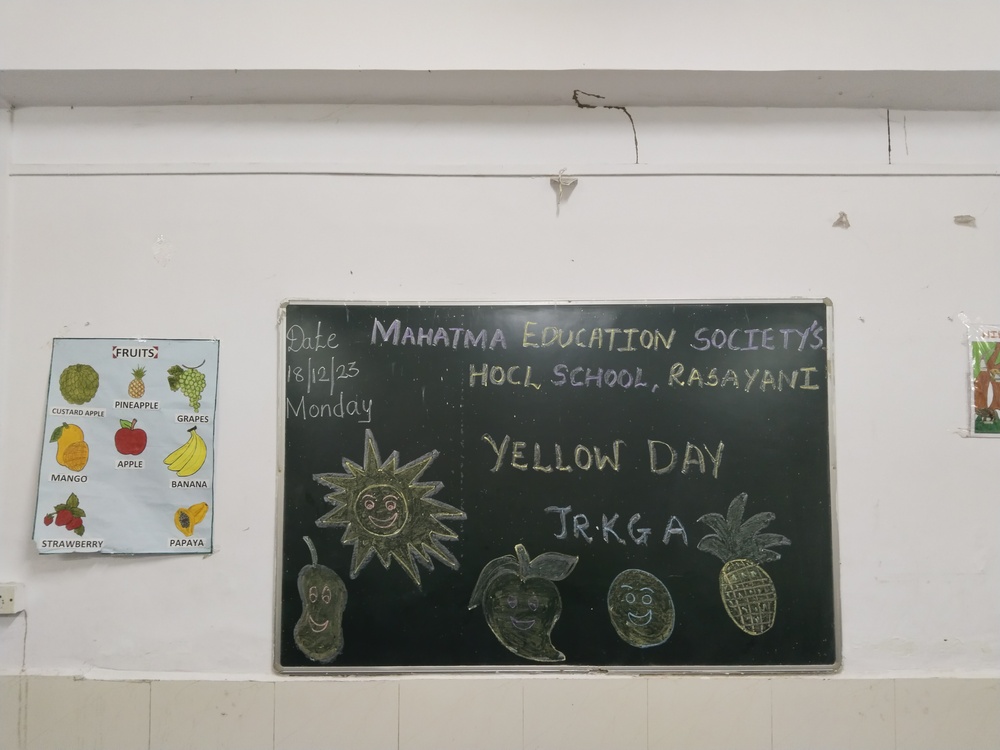 FRUITS
CUSTARD APPLE
PINEAPPLE
GRAPES
MANGO
APPLE
BANANA
STRAWBERRY
PAPAYA
Date
18/12/23
Monday
MAHATMA EDUCATION SOCIETY'S
HOCL SCHOOL, RASAYANI
YELLOW DAY
JR.KG A